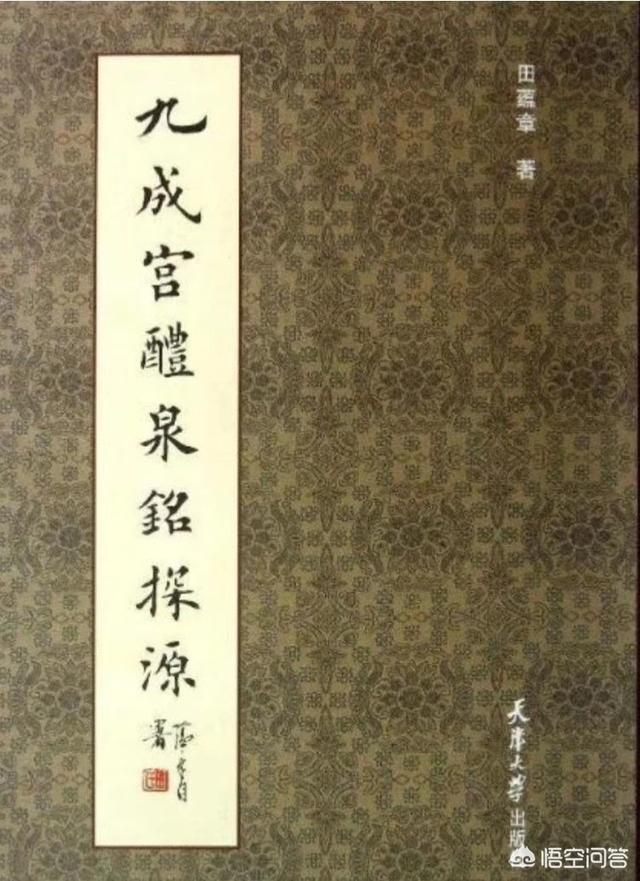 九成宫醴泉銘探源
署
田蕴章 著
天津大学出版
悟空问答